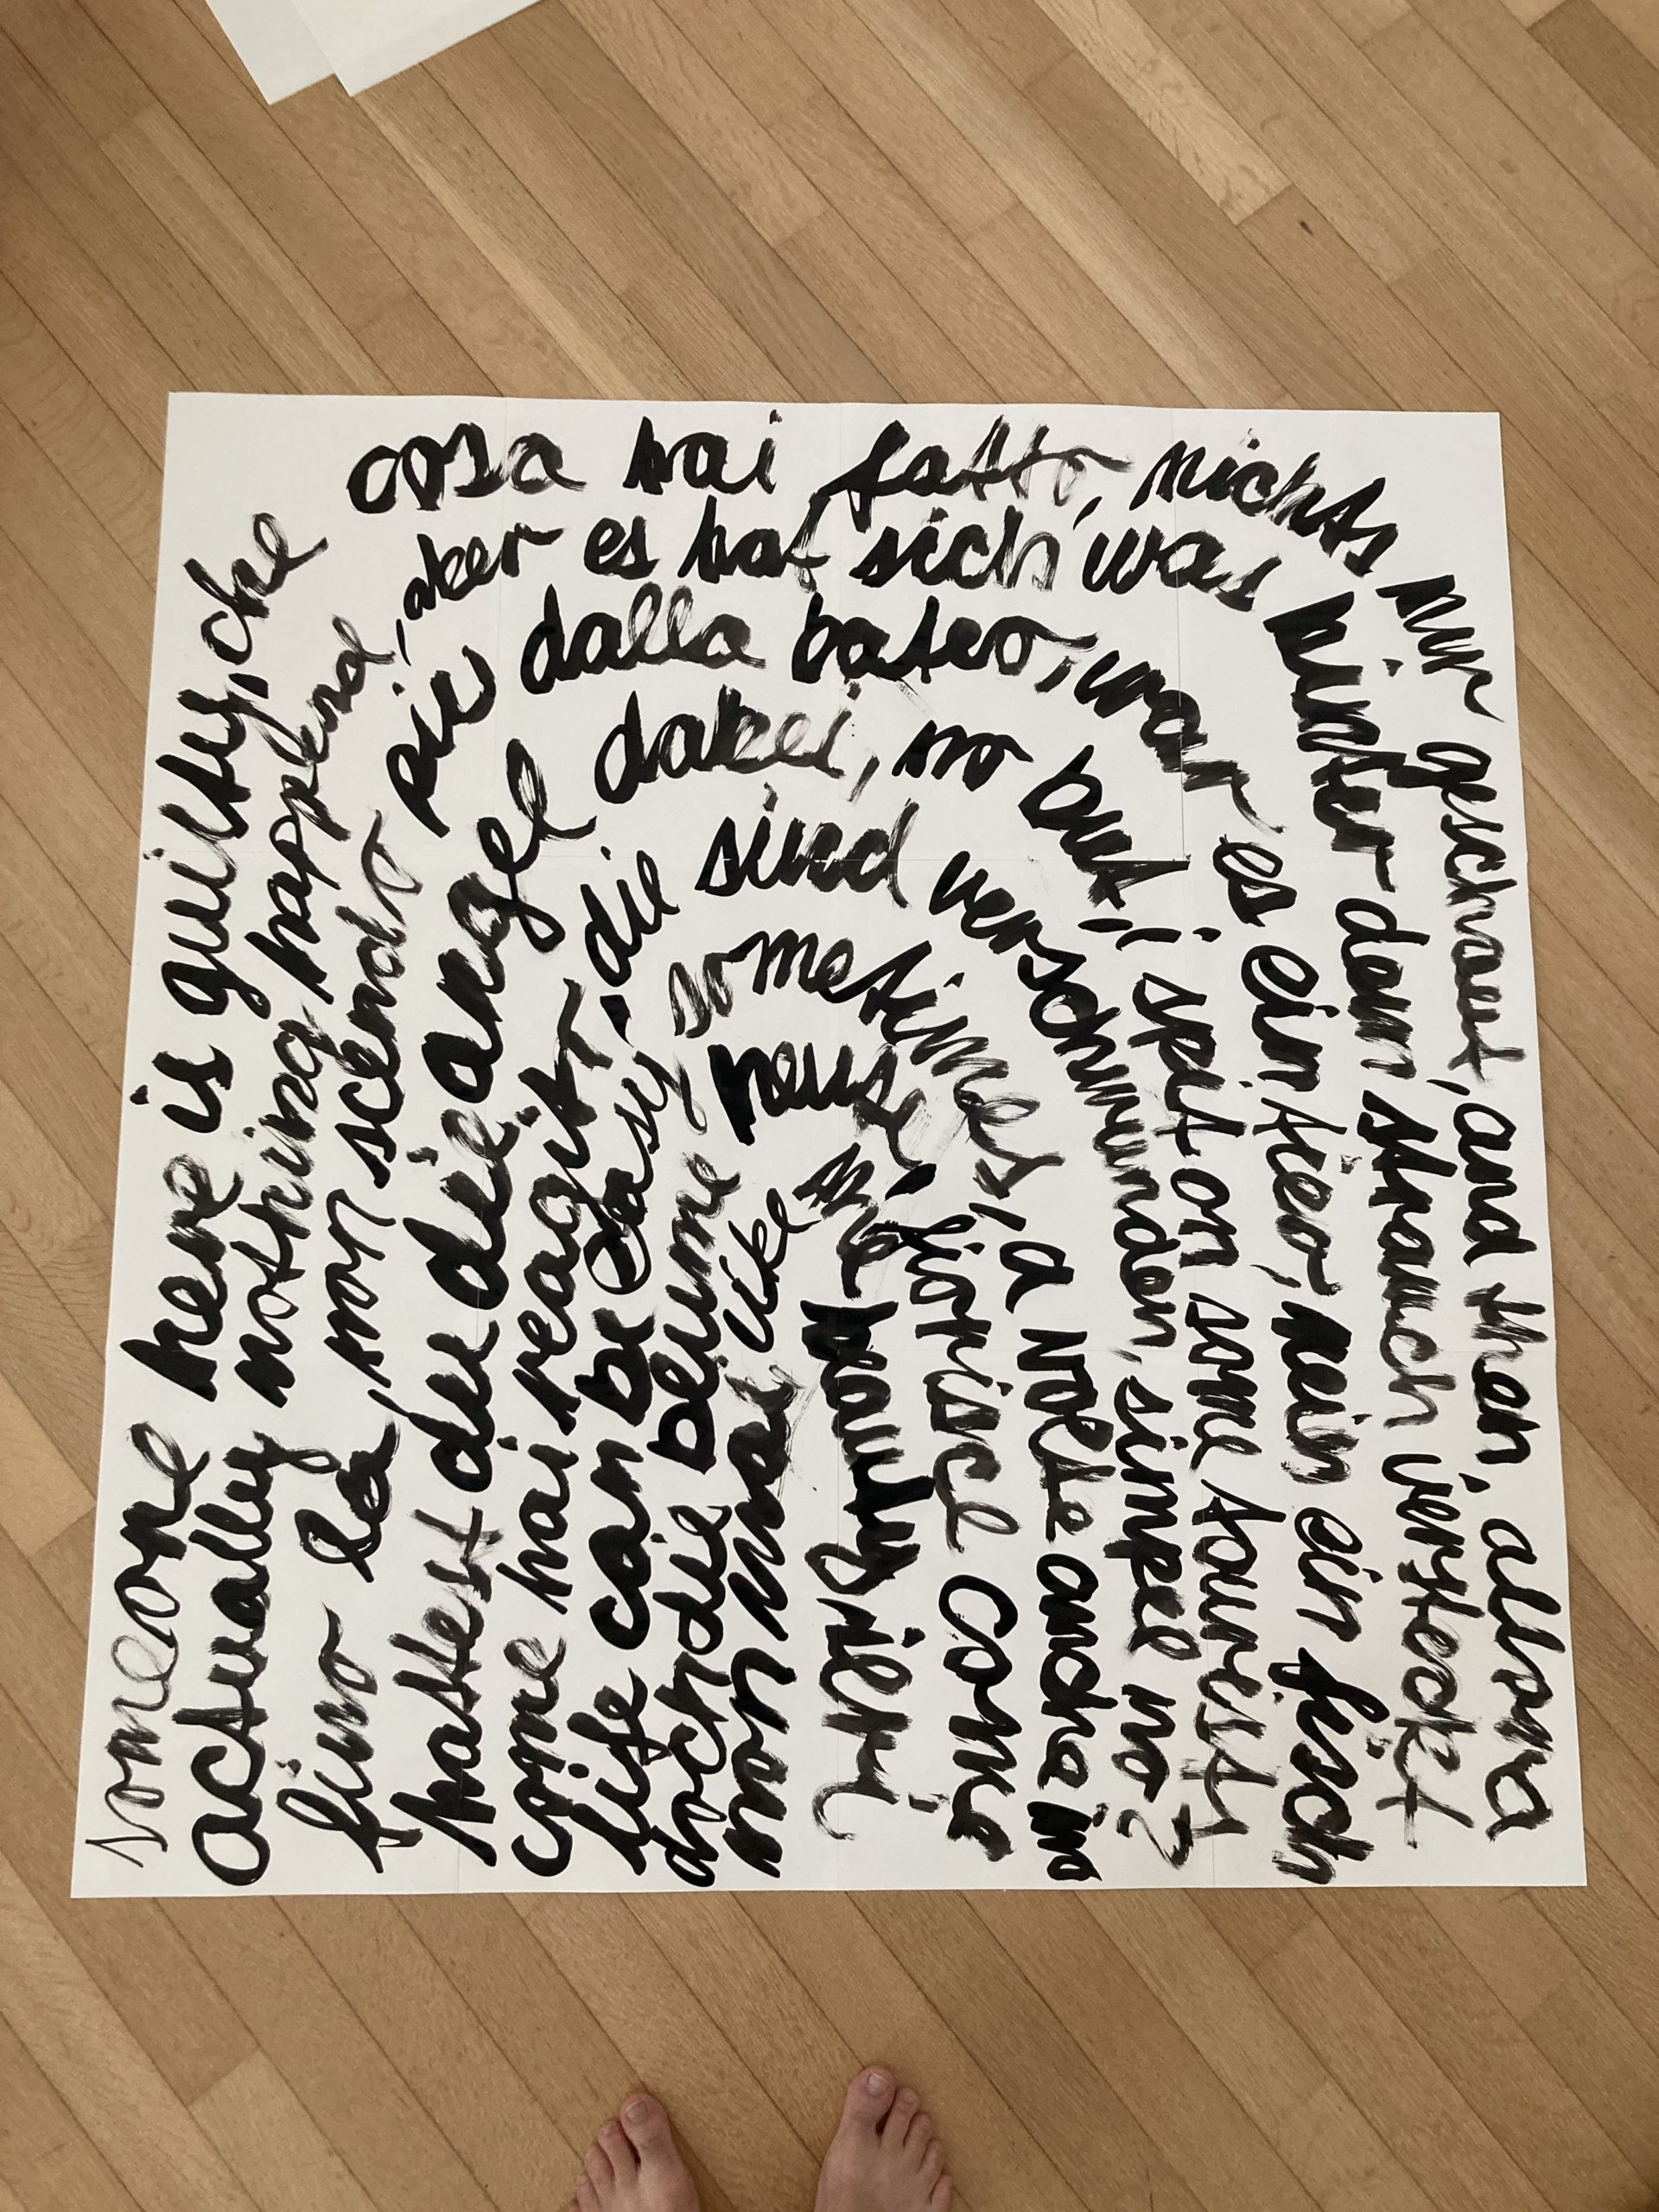 someone here is guilty, che cosa hai fatto, nichts nur geschaut, and then, allora
actually nothing happend, aber es hat sich was hinter dem strauch versteckt
fino la, non scendo piu dalla bateo, war es ein tier, nein ein fisch
hattest du die angel dabei, no but, i spit on some tourists
come hai reagito, die sind verschwunden, simpel no?
life can be easy sometimes, a volte ancha in
doch die beume fiorisce come
non mai like the beauty